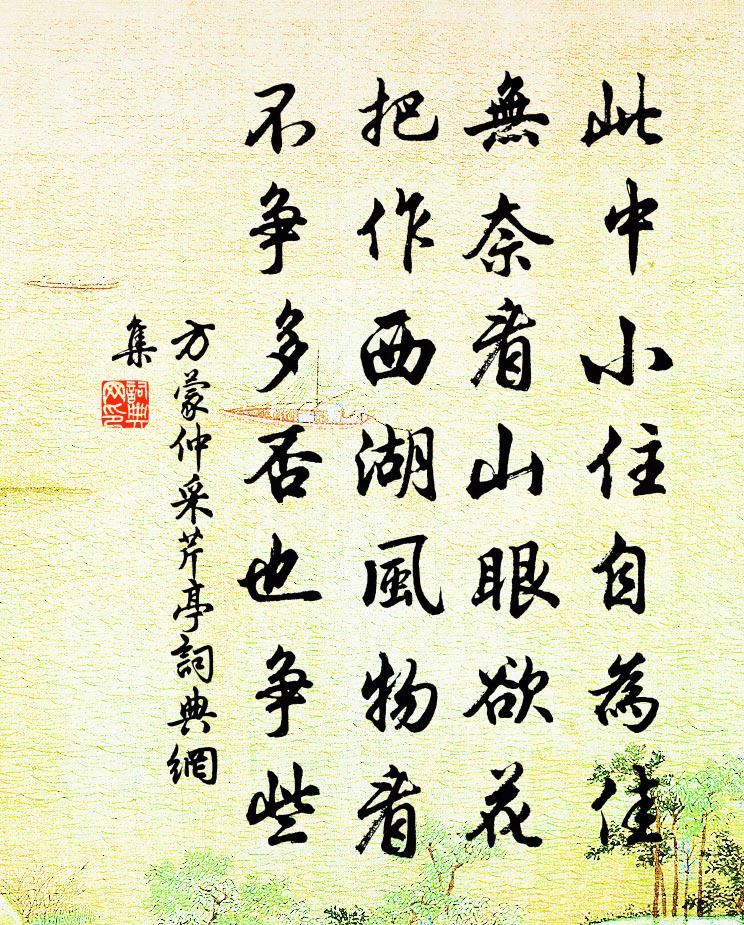 此中小住自為佳
無奈看山眼欲花
把作西湖風物看
不争多否也争些
方蒙仲采芹亭詞典網
集
詞典
网印